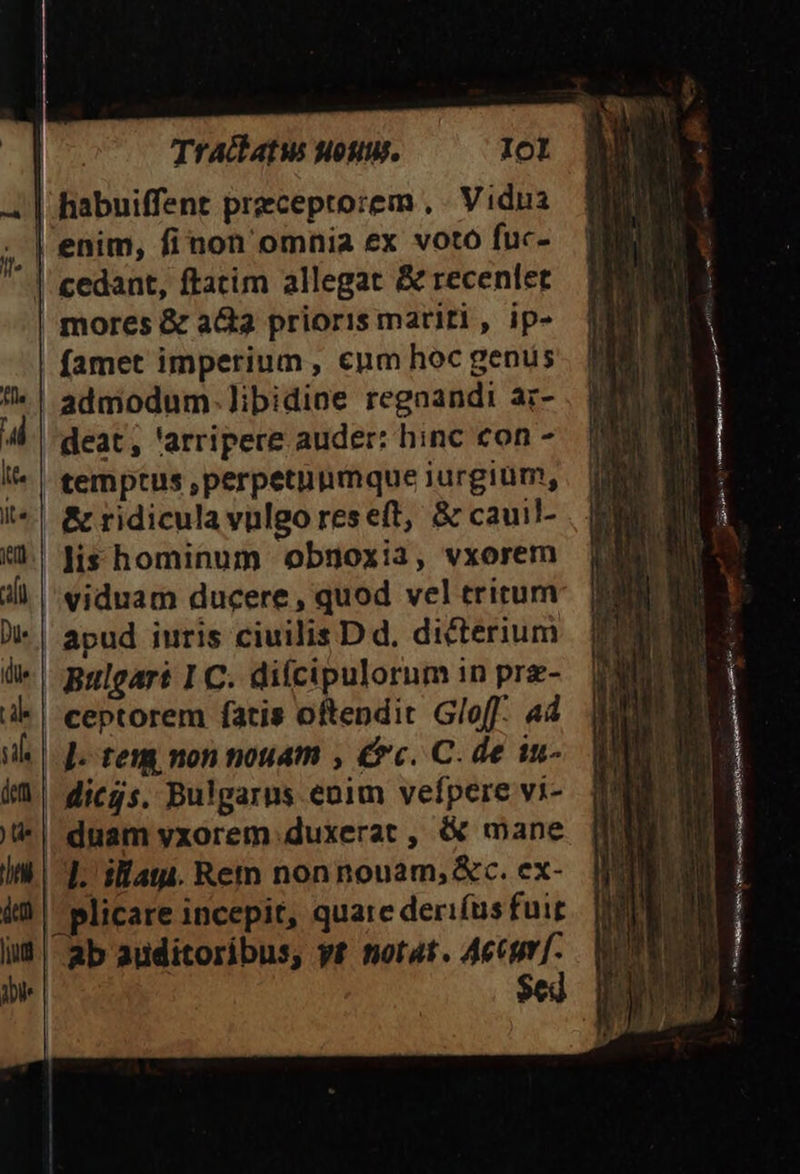 Tractatus nouus. 101
habuiſſent præceptorem, Vidua
enim, ſi non omnia ex voto ſuc-
cedant, ſtatim allegat & recenſet
mores & acta prioris mariti, ip-
ſamet imperium, cum hoc genus
admodum libidine regnandi ar-
deat, arripere audet: hinc con-
temptus, perpetuumque iurgium,
& ridicula vulgo res eſt, & cauil-
lis hominum obnoxia, vxorem
viduam ducere, quod vel tritum
apud iuris ciuilis Dd. dicterium
Bulgari IC. diſcipulorum in præ-
ceptorem ſatis oſtendit Gloſſ. ad
l. rem non nouam, &c. C. de iu-
dicijs. Bulgarus enim veſpere vi-
duam vxorem duxerat, & mane
l. illam. Rem non nouam, &c. ex-
plicare incepit, quare deriſus fuit
ab auditoribus, vt notat. Accurſ.
Sed